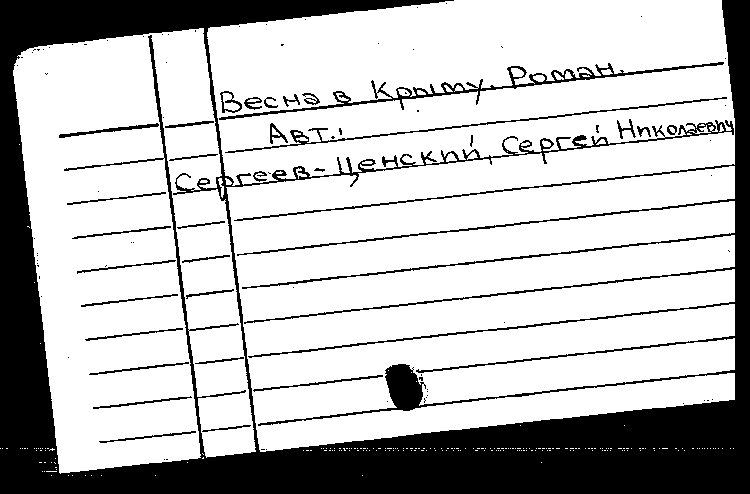 Весна в Крыму. Роман.
Авт.:
Сергеев-Ценский, Сергей Николаевич